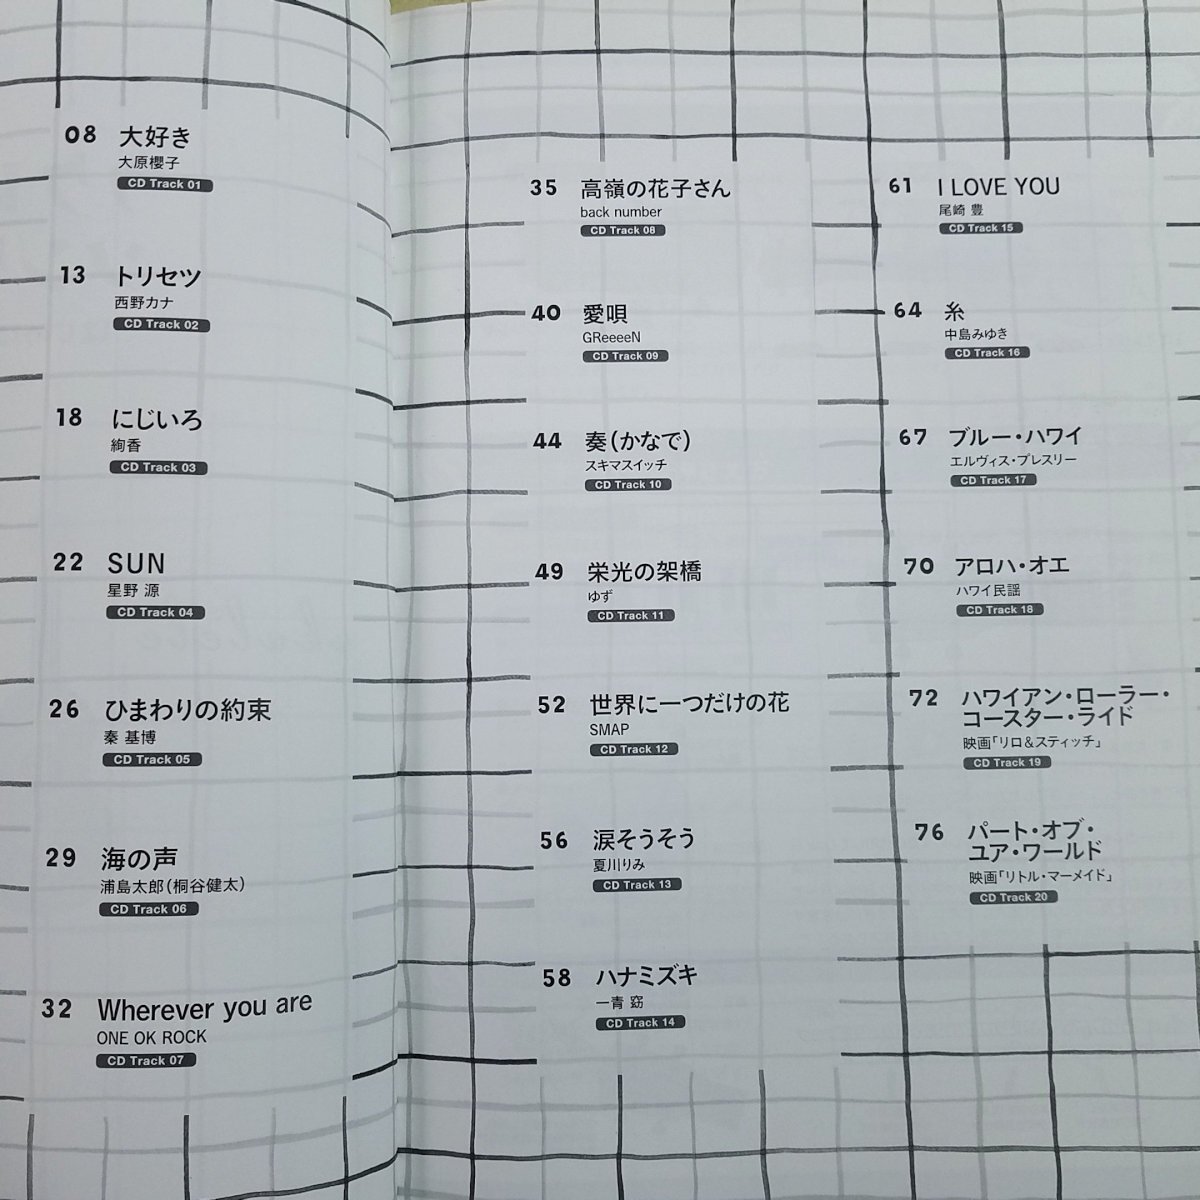 08 大好き
大原櫻子
CD Track 01
13 トリセツ
西野カナ
CD Track 02
18 にじいろ
絢香
CD Track 03
22 SUN
星野 源
CD Track 04
26 ひまわりの約束
秦 基博
CD Track 05
29 海の声
浦島太郎(桐谷健太)
CD Track 06
32 Wherever you are
ONE OK ROCK
CD Track 07
35 高嶺の花子さん
back number
CD Track 08
40 愛唄
GReeeeN
CD Track 09
44 奏(かなで)
スキマスイッチ
CD Track 10
49 栄光の架橋
ゆず
CD Track 11
52 世界に一つだけの花
SMAP
CD Track 12
56 涙そうそう
夏川りみ
CD Track 13
58 ハナミズキ
一青 窈
CD Track 14
61 I LOVE YOU
尾崎 豊
CD Track 15
64 糸
中島みゆき
CD Track 16
67 ブルー・ハワイ
エルヴィス・プレスリー
CD Track 17
70 アロハ・オエ
ハワイ民謡
CD Track 18
72 ハワイアン・ローラー・
コースター・ライド
映画「リロ&スティッチ」
CD Track 19
76 パート・オブ・
ユア・ワールド
映画「リトル・マーメイド」
CD Track 20